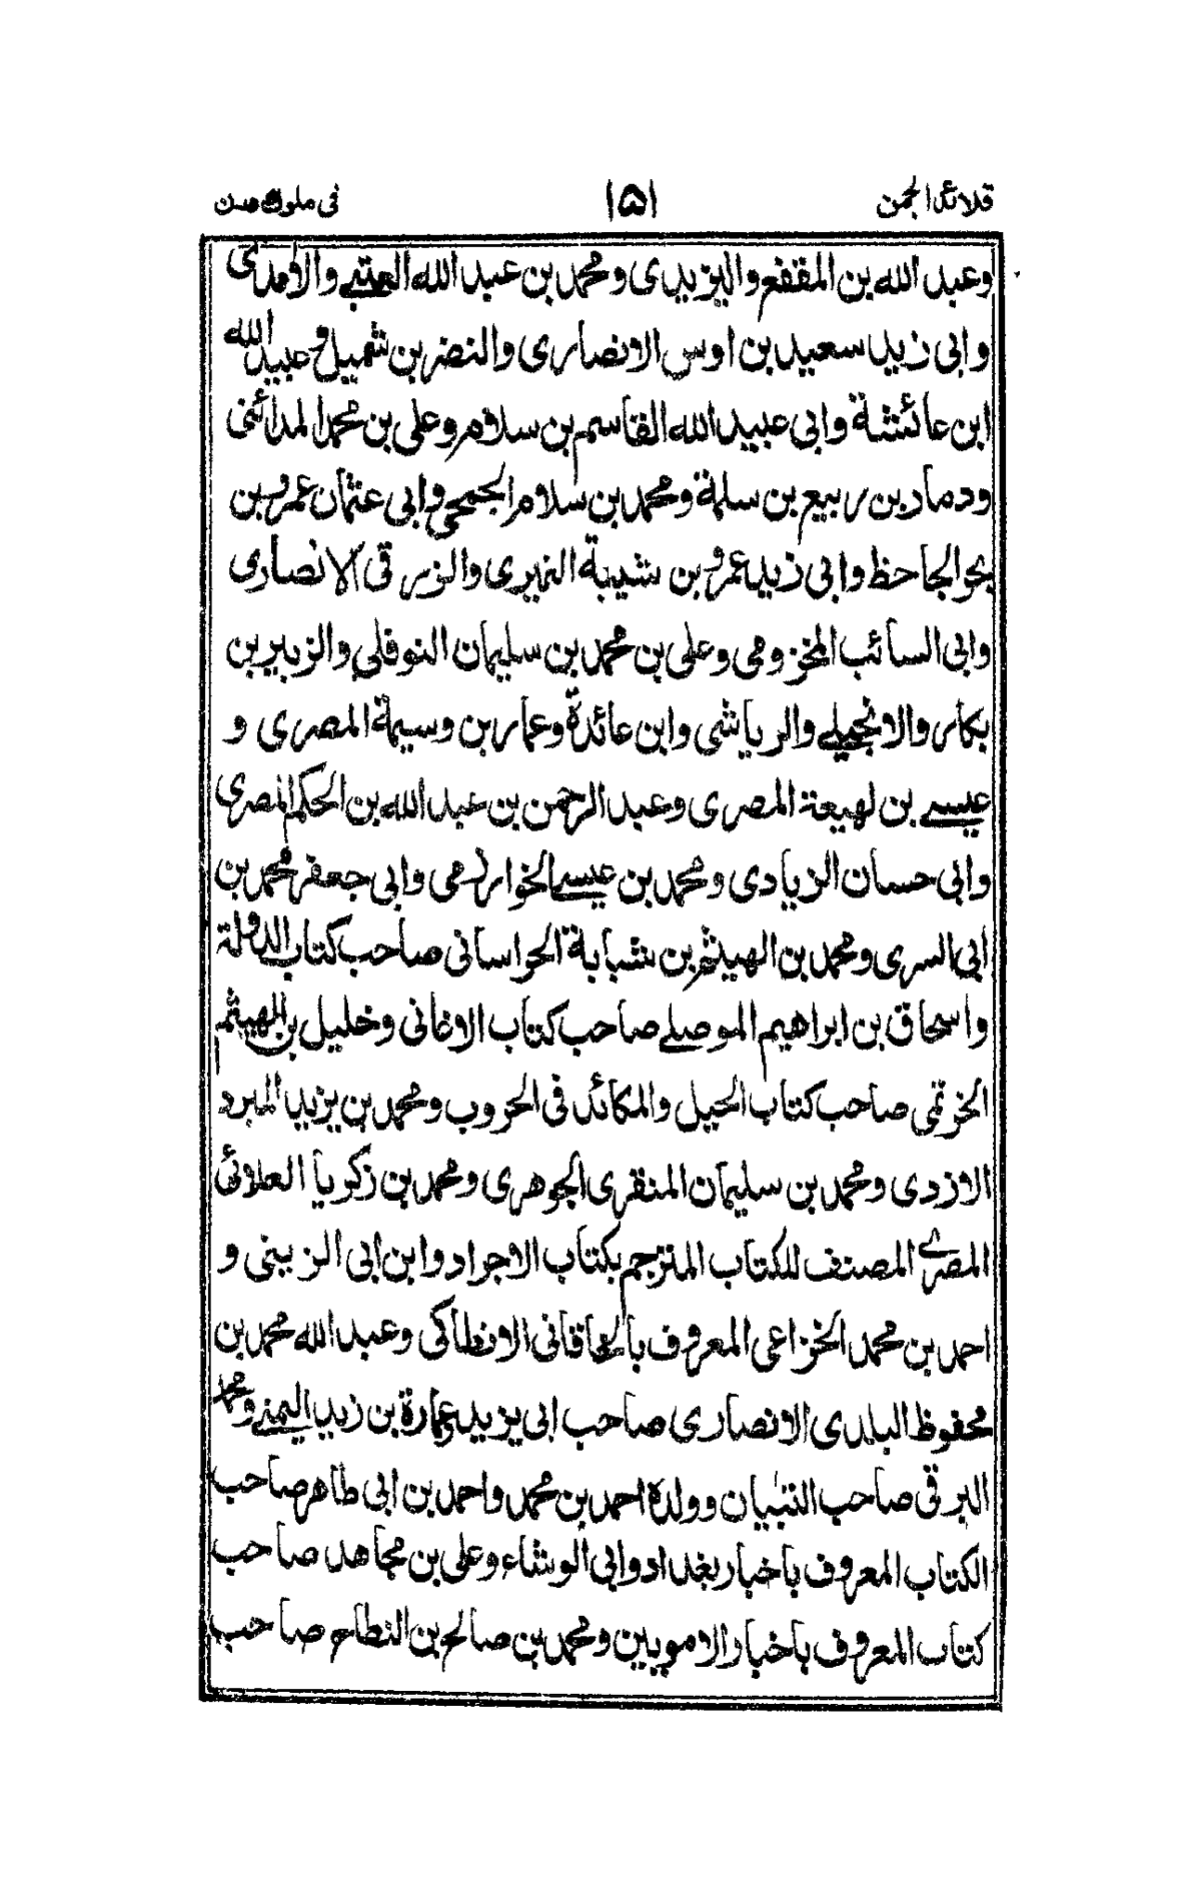 قلائد الجمن ١٥١ في ملوك عدن
وعبد الله بن المقفع واليزيدى ومحمد بن عبد الله العتبے والامدى
وابى زيد سعيد بن اوس الانصارى والنضر بن شميل وعبيد الله
ابن عائشة وابى عبيد الله القاسم بن سلام وعلى بن محمد المدائنى
ودماد بن ربيع بن سلمة ومحمد بن سلام الجمحى وابى عثمان عمرو بن
بحر الجاحظ وابى زيد عمرو بن شيبة النميرى والزرقى الانصارى
وابى السائب المخزومى وعلى بن محمد بن سليمان النوفلى والزبير بن
بكار والانجيلے والرياشى وابن عائدة وعمار بن وسيمة المصرى و
عيسے بن لهيعة المصرى وعبد الرحمن بن عبد الله بن الحكم المصرى
وابى حسان الزيادى ومحمد بن عيسے الخوارزمى وابى جعفر محمد بن
ابى السرى ومحمد بن الهيثم بن شبابة الخراسانى صاحب كتاب الدولة
واسحاق بن ابراهيم الموصلے صاحب كتاب الاغانى وخليل بن الهيثم
الخرتمى صاحب كتاب الحيل والمكائد فى الحروب ومحمد بن يزيد المبرد
الازدى ومحمد بن سليمان المنقرى الجوهرى ومحمد بن زكريا العلائى
المصرے المصنف للكتاب المترجم بكتاب الاجراد وابن ابى الزبينى و
احمد بن محمد الخزاعى المعروف بالخاقانى الانطاكى وعبد الله محمد بن
محفوظ البلدى الانصارى صاحب ابى يزيد عمارة بن زيد اليمنے ومحمد
البرقى صاحب التبيان وولدة احمد بن محمد واحمد بن ابى طاهر صاحب
الكتاب المعروف باخبار بغداد وابى الوشاء وعلى بن مجاهد صاحب
كتاب المعروف باخبار الامويين ومحمد بن صالح بن النطاح صاحب